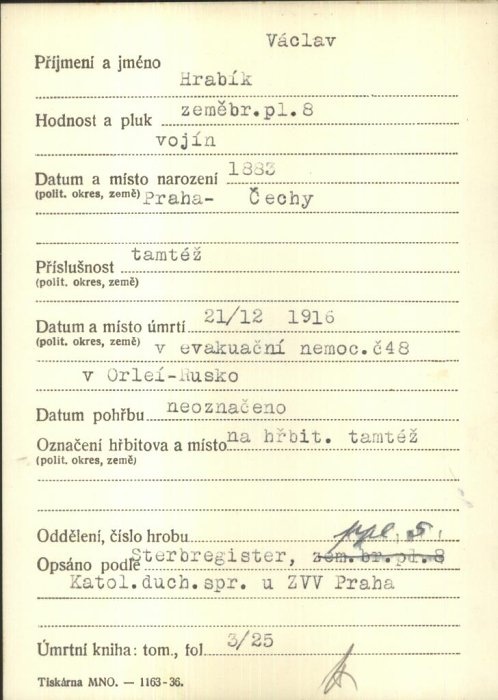 Václav
Příjmení a jméno
Hrabík
Hodnost a pluk zeměbr.pl.8
vojín
Datum a místo narození 1883
(polit. okres, země) Praha- Čechy
Příslušnost tamtéž
(polit. okres, země)
Datum a místo úmrtí 21/12 1916
(polit. okres, země) v evakuační nemoc.č48
v Orleí-Rusko
Datum pohřbu neoznačeno
Označení hřbitova a místo na hřbit. tamtéž
(polit. okres, země)
Oddělení, číslo hrobu
Opsáno podle Sterbregister, zem.br.pl.8
Katol.duch.spr. u ZVV Praha
Úmrtní kniha: tom., fol 3/25
Tiskárna MNO. — 1163-36.